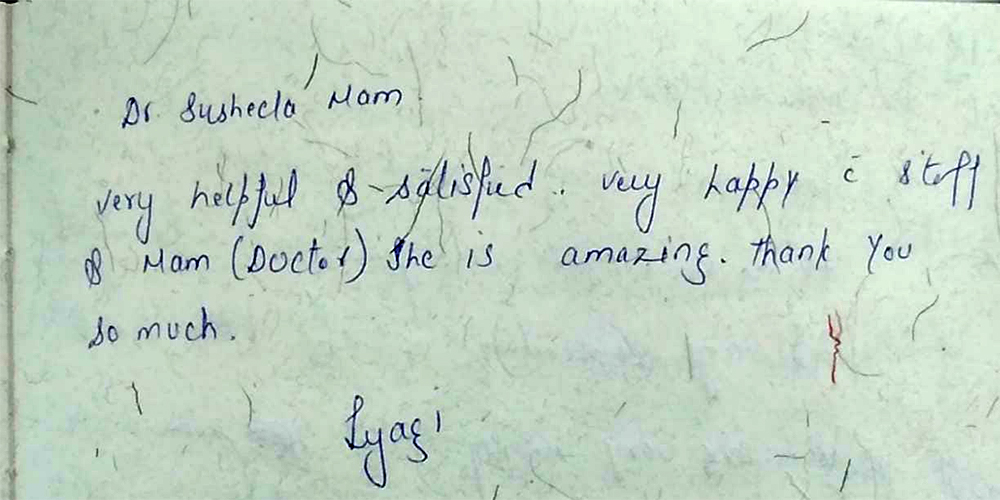 Dr. Susheela Mam.
very helpful & satisfied. very happy c̄ staff
& Mam (Doctor) She is amazing. Thank You
so much.